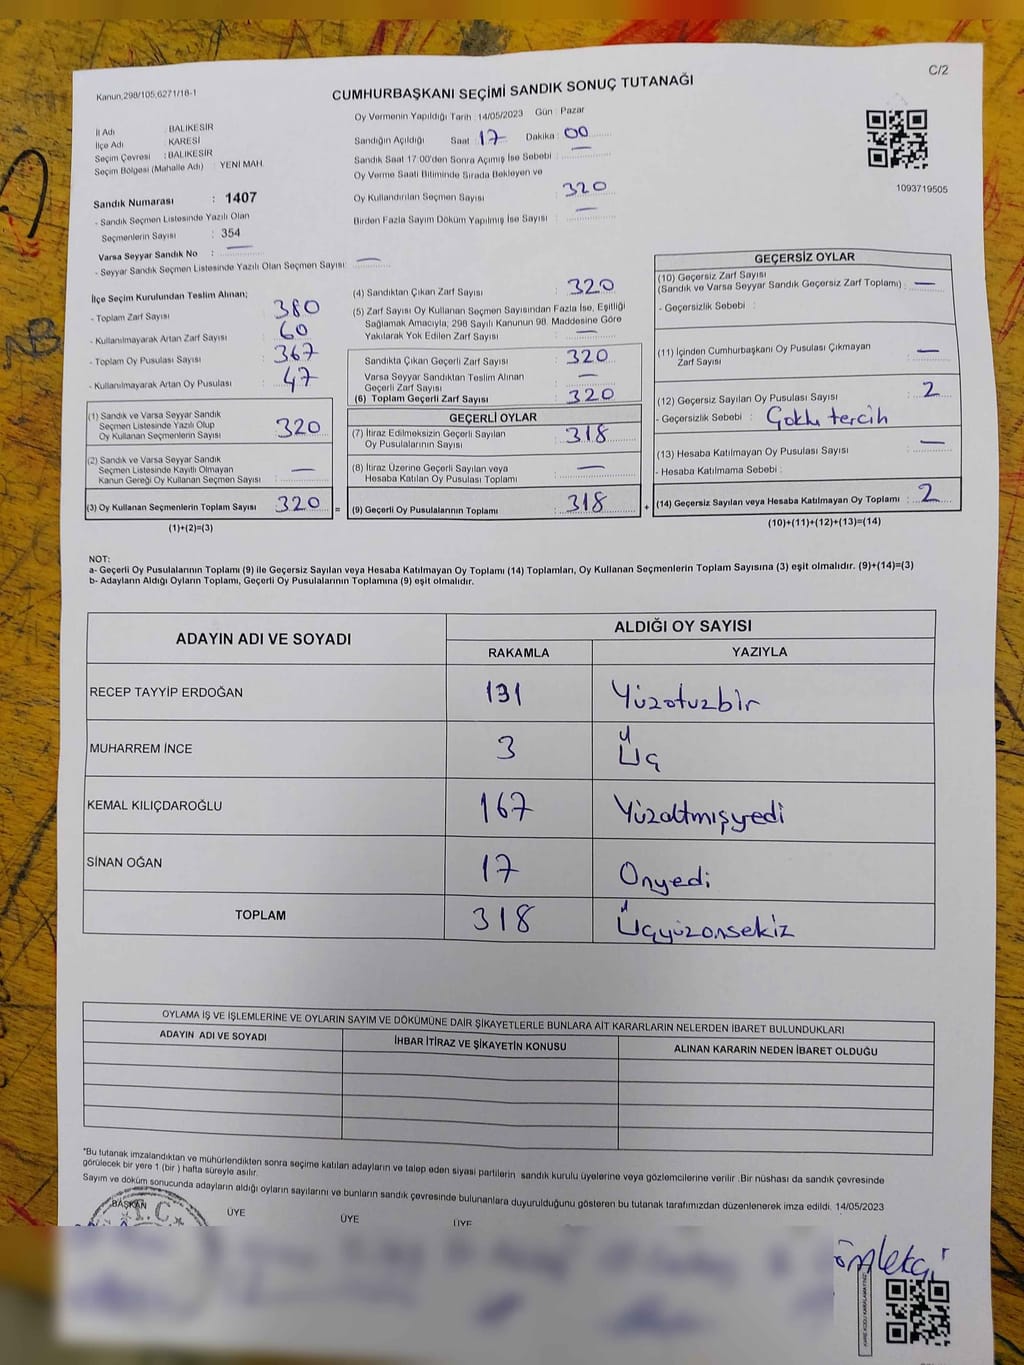 C/2
Kanun,298/105,6271/18-1
CUMHURBAŞKANI SEÇİMİ SANDIK SONUÇ TUTANAĞI
İl Adı : BALIKESİR
İlçe Adı : KARESİ
Seçim Çevresi : BALIKESİR
Seçim Bölgesi (Mahalle Adı) : YENİ MAH.
Sandık Numarası : 1407
- Sandık Seçmen Listesinde Yazılı Olan
Seçmenlerin Sayısı : 354
Varsa Seyyar Sandık No : —
- Seyyar Sandık Seçmen Listesinde Yazılı Olan Seçmen Sayısı: —
Oy Vermenin Yapıldığı Tarih : 14/05/2023 Gün : Pazar
Sandığın Açıldığı Saat : 17 Dakika : 00
Sandık Saat 17:00'den Sonra Açılmış İse Sebebi : —
Oy Verme Saati Bitiminde Sırada Bekleyen ve
Oy Kullandırılan Seçmen Sayısı : 320
Birden Fazla Sayım Döküm Yapılmış İse Sayısı : —
1093719505
İlçe Seçim Kurulundan Teslim Alınan;
- Toplam Zarf Sayısı : 380
- Kullanılmayarak Artan Zarf Sayısı : 60
- Toplam Oy Pusulası Sayısı : 367
- Kullanılmayarak Artan Oy Pusulası : 47
(1) Sandık ve Varsa Seyyar Sandık
Seçmen Listesinde Yazılı Olup
Oy Kullanan Seçmenlerin Sayısı : 320
(2) Sandık ve Varsa Seyyar Sandık
Seçmen Listesinde Kayıtlı Olmayan
Kanun Gereği Oy Kullanan Seçmen Sayısı : —
(3) Oy Kullanan Seçmenlerin Toplam Sayısı : 320
(1)+(2)=(3)
=
(4) Sandıktan Çıkan Zarf Sayısı : 320
(5) Zarf Sayısı Oy Kullanan Seçmen Sayısından Fazla İse, Eşitliği
Sağlamak Amacıyla, 298 Sayılı Kanunun 98. Maddesine Göre
Yakılarak Yok Edilen Zarf Sayısı : —
Sandıkta Çıkan Geçerli Zarf Sayısı : 320
Varsa Seyyar Sandıktan Teslim Alınan
Geçerli Zarf Sayısı : —
(6) Toplam Geçerli Zarf Sayısı : 320
GEÇERLİ OYLAR
(7) İtiraz Edilmeksizin Geçerli Sayılan
Oy Pusulalarının Sayısı : 318
(8) İtiraz Üzerine Geçerli Sayılan veya
Hesaba Katılan Oy Pusulası Toplamı : —
(9) Geçerli Oy Pusulalarının Toplamı : 318
+
GEÇERSİZ OYLAR
(10) Geçersiz Zarf Sayısı
(Sandık ve Varsa Seyyar Sandık Geçersiz Zarf Toplamı) : —
- Geçersizlik Sebebi :
(11) İçinden Cumhurbaşkanı Oy Pusulası Çıkmayan
Zarf Sayısı : —
(12) Geçersiz Sayılan Oy Pusulası Sayısı : 2
- Geçersizlik Sebebi : Çoklu tercih
(13) Hesaba Katılmayan Oy Pusulası Sayısı : —
- Hesaba Katılmama Sebebi :
(14) Geçersiz Sayılan veya Hesaba Katılmayan Oy Toplamı : 2
(10)+(11)+(12)+(13)=(14)
NOT:
a- Geçerli Oy Pusulalarının Toplamı (9) ile Geçersiz Sayılan veya Hesaba Katılmayan Oy Toplamı (14) Toplamları, Oy Kullanan Seçmenlerin Toplam Sayısına (3) eşit olmalıdır. (9)+(14)=(3)
b- Adayların Aldığı Oyların Toplamı, Geçerli Oy Pusulalarının Toplamına (9) eşit olmalıdır.
ADAYIN ADI VE SOYADI
ALDIĞI OY SAYISI
RAKAMLA YAZIYLA
RECEP TAYYİP ERDOĞAN 131 Yüzotuzbir
MUHARREM İNCE 3 Üç
KEMAL KILIÇDAROĞLU 167 Yüzaltmışyedi
SİNAN OĞAN 17 Onyedi
TOPLAM 318 Üçyüzonsekiz
OYLAMA İŞ VE İŞLEMLERİNE VE OYLARIN SAYIM VE DÖKÜMÜNE DAİR ŞİKAYETLERLE BUNLARA AİT KARARLARIN NELERDEN İBARET BULUNDUKLARI
ADAYIN ADI VE SOYADI İHBAR İTİRAZ VE ŞİKAYETİN KONUSU ALINAN KARARIN NEDEN İBARET OLDUĞU
*Bu tutanak imzalandıktan ve mühürlendikten sonra seçime katılan adayların ve talep eden siyasi partilerin sandık kurulu üyelerine veya gözlemcilerine verilir .Bir nüshası da sandık çevresinde
görülecek bir yere 1 (bir ) hafta süreyle asılır.
Sayım ve döküm sonucunda adayların aldığı oyların sayılarını ve bunların sandık çevresinde bulunanlara duyurulduğunu gösteren bu tutanak tarafımızdan düzenlenerek imza edildi. 14/05/2023
BAŞKAN ÜYE ÜYE ÜYE
T.C.